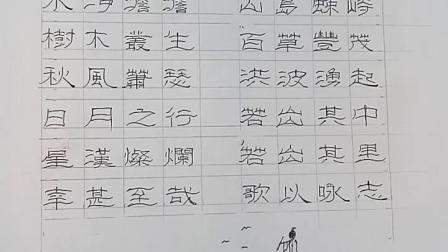 水澹澹 山島竦峙
樹木叢生 百草豐茂
秋風蕭瑟 洪波湧起
日月之行 若出其中
星漢燦爛 若出其里
幸甚至哉 歌以咏志